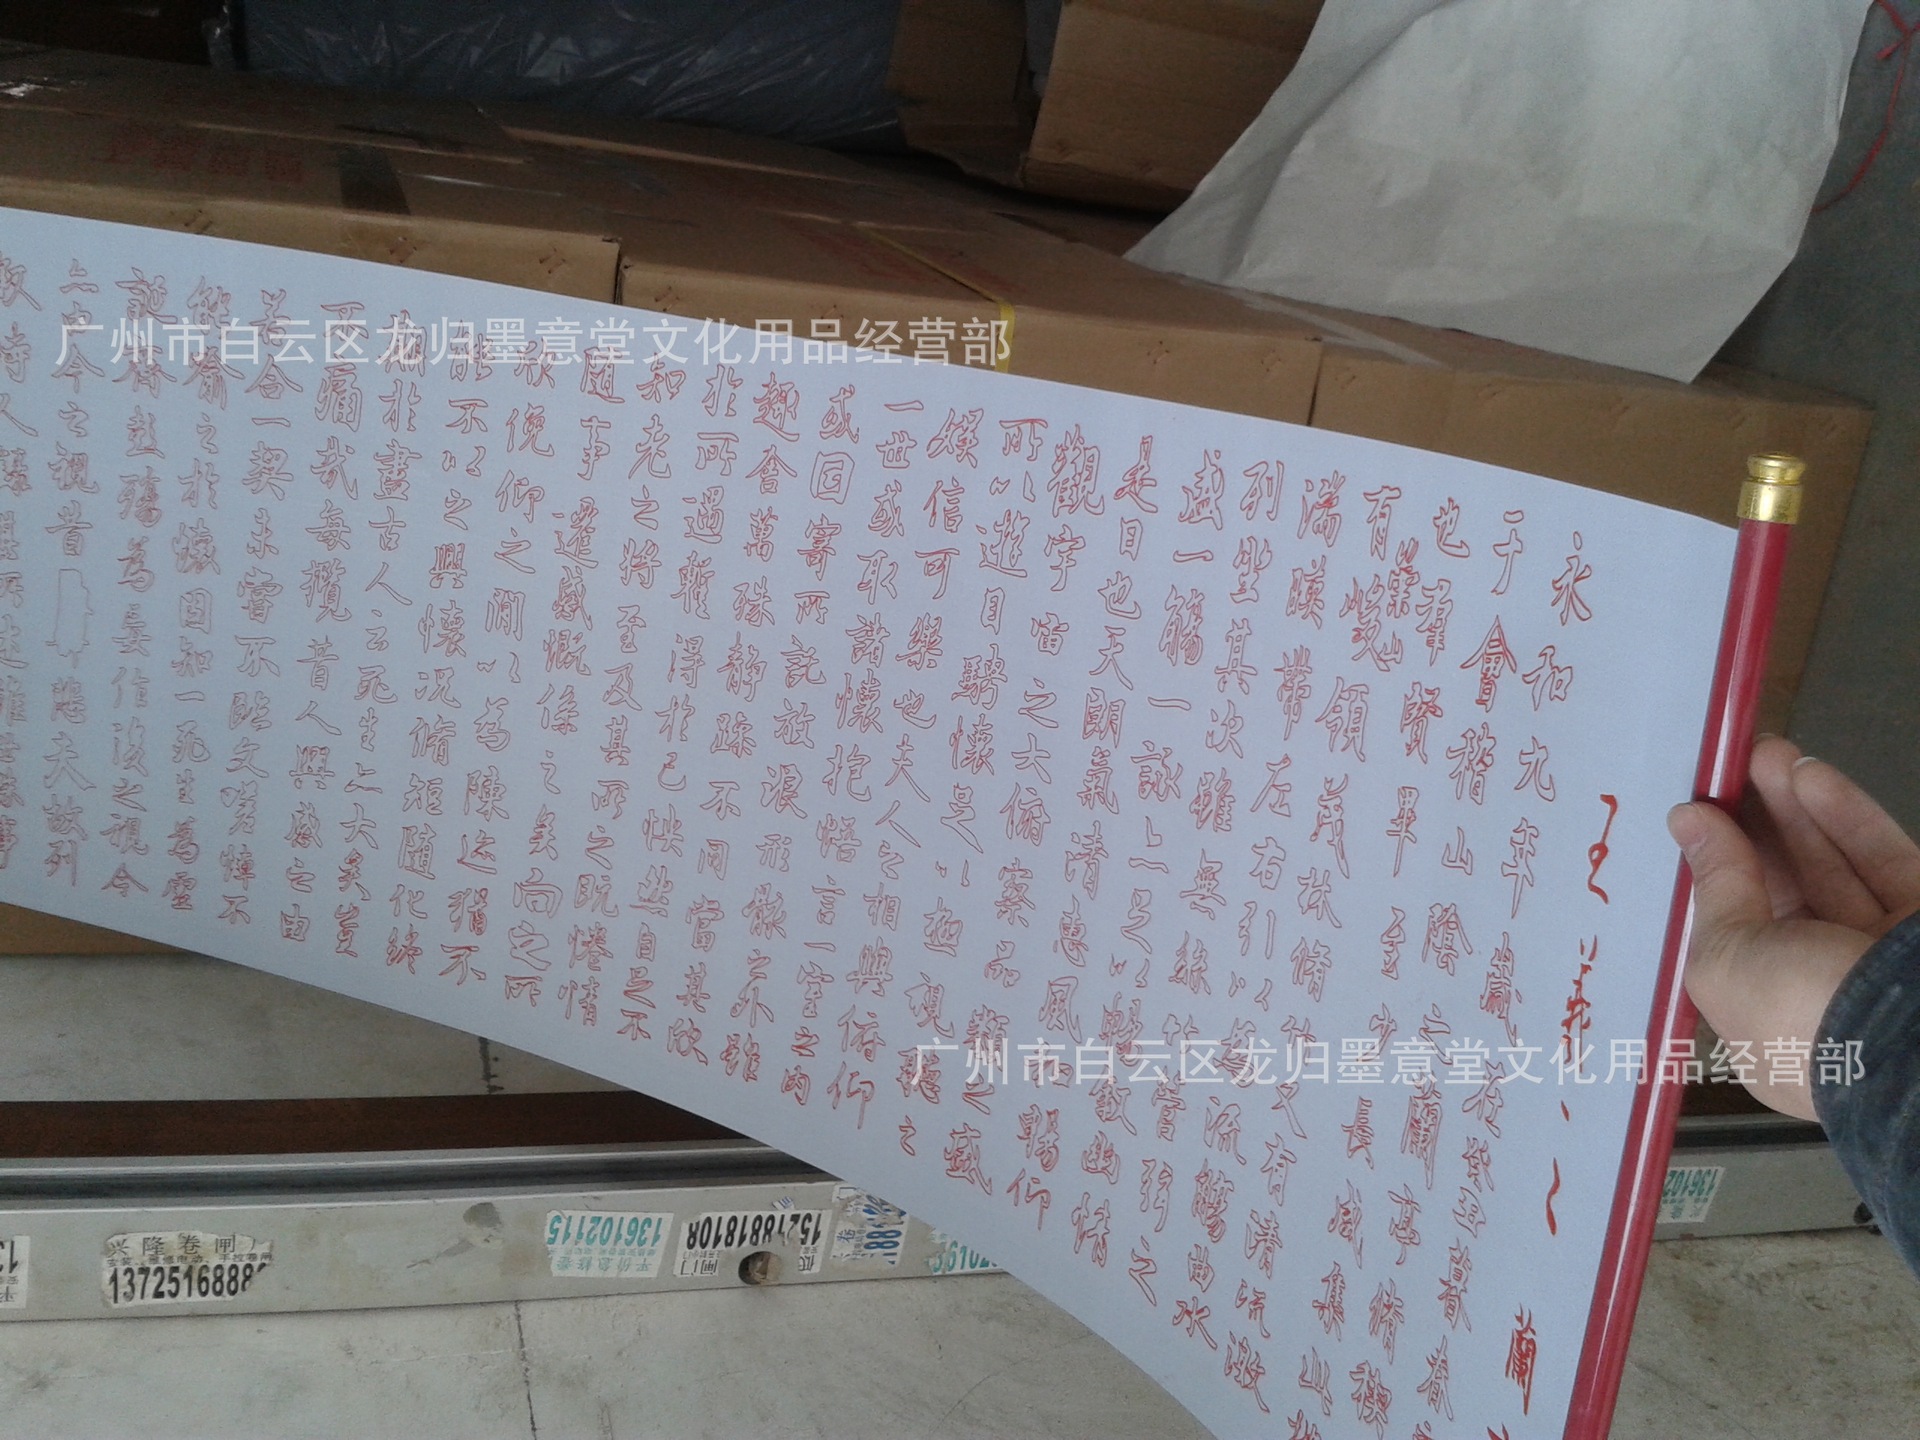 广州市白云区龙归墨意堂文化用品经营部
广州市白云区龙归墨意堂文化用品经营部
王羲之、蘭
永和九年歲在癸丑暮春
于會稽山陰之蘭亭脩禊
也羣賢畢至少長咸集此
有崇山峻領茂林脩竹又有清流激
湍暎帶左右引以為流觴曲水
列坐其次雖無絲竹管弦之
盛一觴一詠亦足以暢敘幽情
是日也天朗氣清惠風和暢仰
觀宇宙之大俯察品類之盛
所以遊目騁懷足以極視聽之
娛信可樂也夫人之相與俯仰
一世或取諸懷抱悟言一室之內
或因寄所託放浪形骸之外雖
趣舍萬殊靜躁不同當其欣
於所遇蹔得於己怏然自足不
知老之將至及其所之既惓情
隨事遷感慨係之矣向之所
欣俛仰之閒以為陳迹猶不
能不以之興懷況脩短隨化終
期於盡古人云死生亦大矣豈
不痛哉每攬昔人興感之由
若合一契未嘗不臨文嗟悼不
能喻之於懷固知一死生為虛
誕齊彭殤為妄作後之視今
亦由今之視昔悲夫故列
敘時人錄其所述雖世殊事
兴隆卷闸
13725168888
136102115
平价急修卷
15218818108
闸门